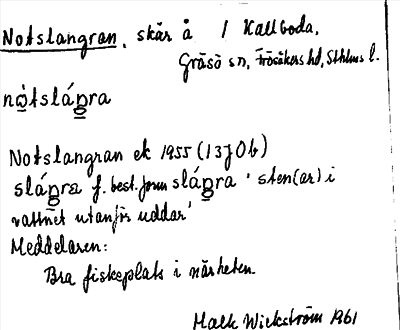 Notslangran, skär å / Kallboda,
Gräsö sn, Frösåkers hd, Sthlms l.
nòtslángra
Notslangran ek 1955 (13J0b)
slángra f. best. form slángra 'sten(ar) i
vattnet utanför uddar'
Meddelaren:
Bra fiskeplats i närheten
Wickström 1961